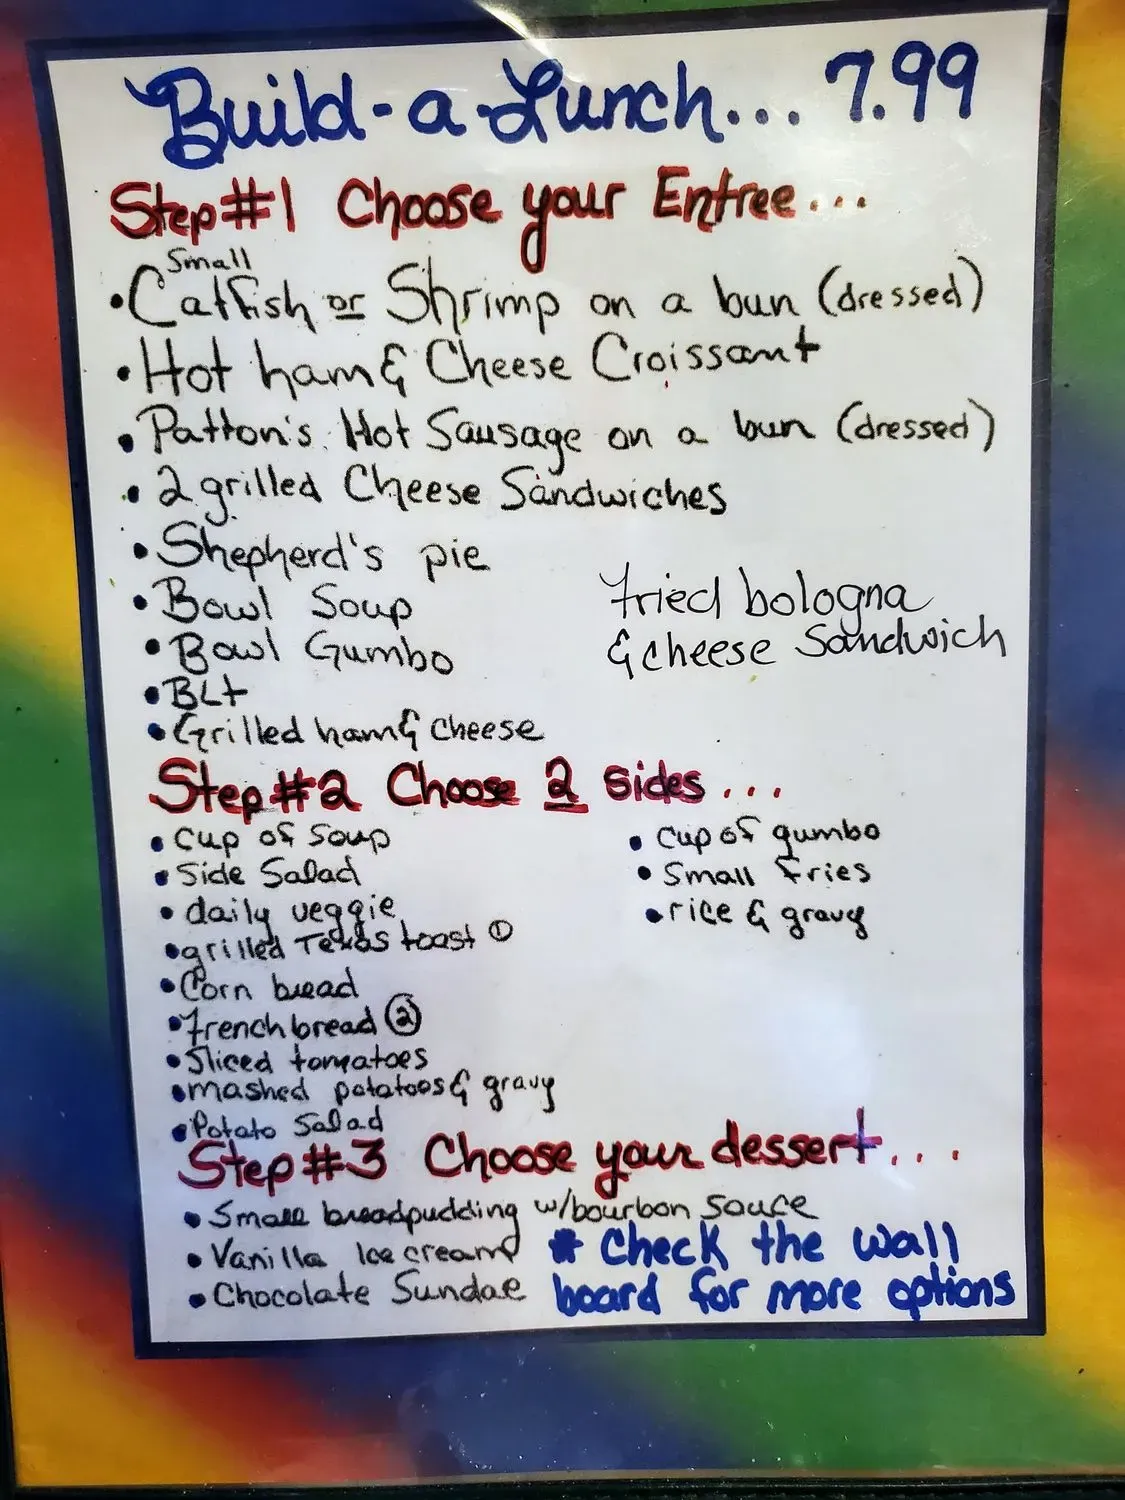 Build-a-Lunch... 7.99
Step #1 Choose your Entree...
Small
• Catfish or Shrimp on a bun (dressed)
• Hot ham & Cheese Croissant
• Patton's Hot Sausage on a bun (dressed)
• 2 grilled Cheese Sandwiches
• Shepherd's pie
• Bowl Soup
• Bowl Gumbo
• BLT
• Grilled ham & cheese
Fried bologna
& cheese Sandwich
Step #2 Choose 2 sides...
• cup of soup
• Side Salad
• daily veggie
• grilled Texas toast ①
• Corn bread
• French bread ②
• Sliced tomatoes
• mashed potatoes & gravy
• Potato Salad
• cup of gumbo
• Small fries
• rice & gravy
Step #3 Choose your dessert...
• Small breadpudding w/bourbon sauce
• Vanilla Ice cream
• Chocolate Sundae
* Check the wall
board for more options